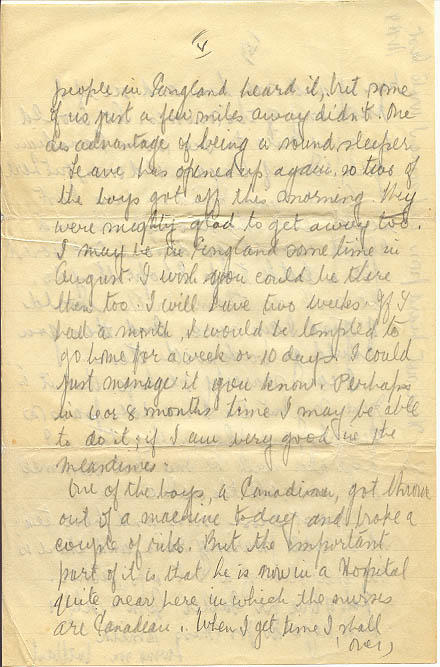 V
people in England heard it, but some
of us just a few miles away didn't. One
disadvantage of being a sound sleeper
Leave has opened up again, so two of
the boys got off this morning. They
were mighty glad to get away too.
I may be in England some time in
August. I wish you could be there
then too. I will have two weeks. If I
had a month, I would be tempted to
go home for a week or 10 days. I could
just manage it you know. Perhaps
in 6 or 8 months time I may be able
to do it, if I am very good in the
meantime.
One of the boys, a Canadian, got thrown
out of a machine today and broke a
couple of ribs. But the important
part of it is that he is now in a Hospital
quite near here in which the nurses
are Canadian. When I get time I shall
over,